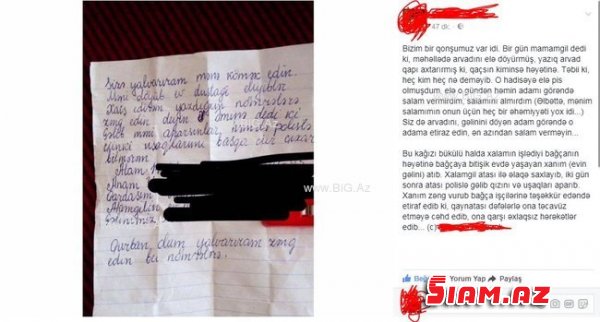 Sizə yalvarıram mənə kömək edin.
Məni döyüb
Xaiş edirəm yazdığım nömrələrə
zəng edin deyin
gəlib məni aparsınlar,
uşaqlarımı başqa cür çıxar
bilmirəm
Atam
Anam
Qardaşım
Qurban olum yalvarıram zəng
edin bu nömrələrə.
www.BiG.Az
47 dk
Bizim bir qonşumuz var idi. Bir gün mamamgil dedi
ki, məhəllədə arvadını elə döyürmüş, yazıq arvad
qapı axtarırmış ki, qaçsın kiminsə həyətinə. Təbii ki,
heç kim heç nə deməyib. O hadisəyə elə pis
olmuşdum, elə o gündən həmin adamı görəndə
salam vermirdim, salamını almırdım (Əlbəttə, mənim
salamımın onun üçün heç bir əhəmiyyəti yox idi...)
Siz də arvadını, gəlinini döyən adam görəndə o
adama etiraz edin, ən azından salam verməyin...
Bu kağızı bükülü halda xalamın işlədiyi bağçanın
həyətinə bağçaya bitişik evdə yaşayan xanım (evin
gəlini) atıb. Xalamgil atası ilə əlaqə saxlayıb, iki gün
sonra atası polislə gəlib qızını və uşaqları aparıb.
Xanım zəng vurub bağça işçilərinə təşəkkür edəndə
etiraf edib ki, qaynatası dəfələrlə ona təcavüz
etməyə cəhd edib, ona qarşı əxlaqsız hərəkətlər
edib... (c)
Yorum Yap Paylaş
SİAM.AZ